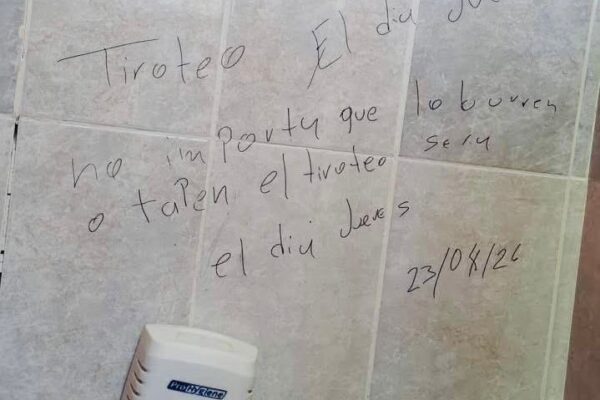 Tiroteo El diu Jue
no importu que lo burren
o tapen el tiroteo seru
el diu Jueves
23/04/26
ProHygiene